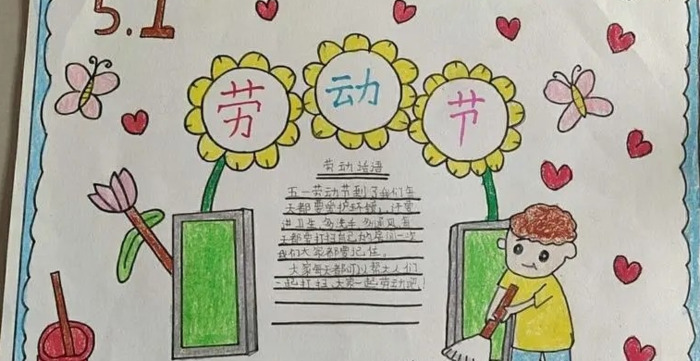 5.1
劳动节
劳动话语
五一劳动节到了我们每
天都要爱护环境，还要
讲卫生，多洗手多通风，每
天都要打扫自己的房间一次
我们大家都要记住。
大家每天都可以帮大人们
一起打扫，大家一起劳动吧！